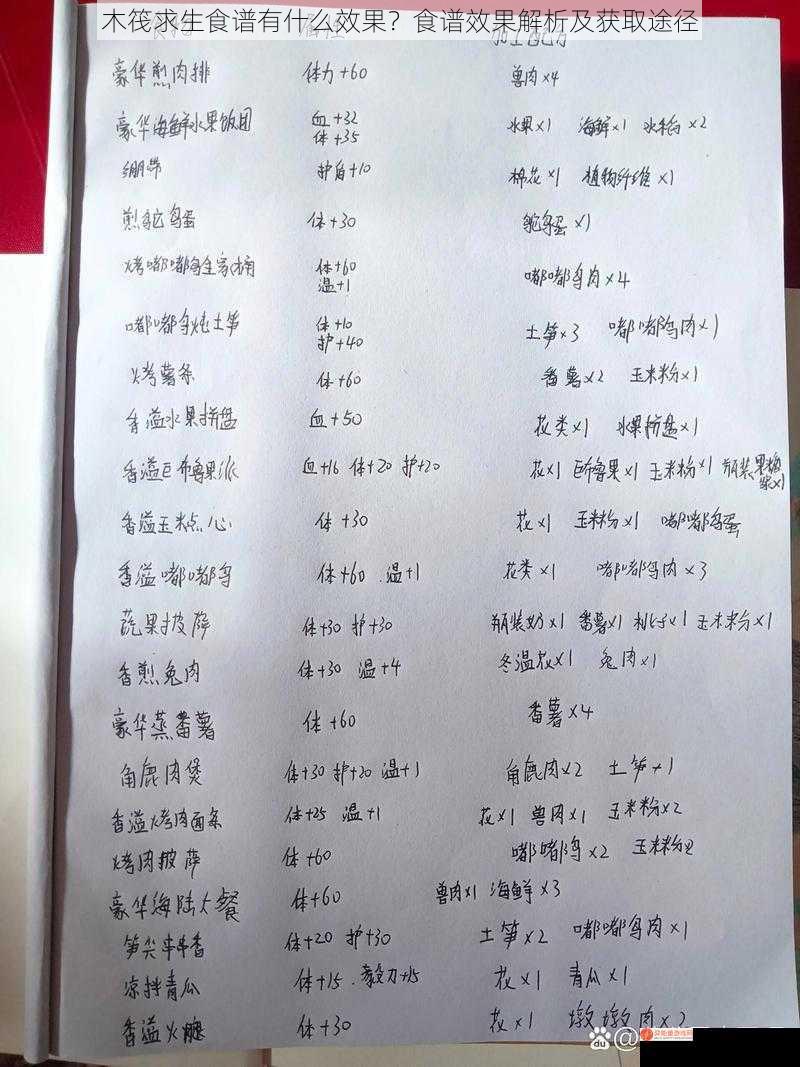 木筏求生食谱有什么效果？食谱效果解析及获取途径
豪华煎肉排 体力+60 兽肉×4
豪华海鲜水果饭团 血+32 体+35 水果×1 海鲜×1 水稻×2
绷带 护盾+10 棉花×1 植物纤维×1
煎鸵鸟蛋 体+30 鸵鸟蛋×1
烤嘟嘟鸟全家桶 体+60 温+1 嘟嘟鸟肉×4
嘟嘟鸟炖土笋 体+10 护+40 土笋×3 嘟嘟鸟肉×1
烤薯条 体+60 番薯×2 玉米粉×1
香溢水果拼盘 血+50 花类×1 水果拼盘×1
香溢巨布鲁果派 血+16 体+20 护+20 花×1 巨布鲁果×1 玉米粉×1 瓶装果糖浆×1
香溢玉米点心 体+30 花×1 玉米粉×1 嘟嘟鸟蛋
香溢嘟嘟鸟 体+60 温+1 花类×1 嘟嘟鸟肉×3
蔬果披萨 体+30 护+30 瓶装奶×1 番薯×1 桃子×1 玉米粉×1
香煎兔肉 体+30 温+4 冬温花×1 兔肉×1
豪华蒸番薯 体+60 番薯×4
角鹿肉煲 体+30 护+20 温+1 角鹿肉×2 土笋×1
香溢烤肉面条 体+25 温+1 花×1 兽肉×1 玉米粉×2
烤肉披萨 体+60 嘟嘟鸟×2 玉米粉2
豪华海陆大餐 体+60 兽肉×1 海鲜×3
笋尖串香 体+20 护+30 土笋×2 嘟嘟鸟肉×1
凉拌青瓜 体+15 毅力+15 花×1 青瓜×1
香溢火腿 体+30 花×1 墩墩肉×2
Bai du @